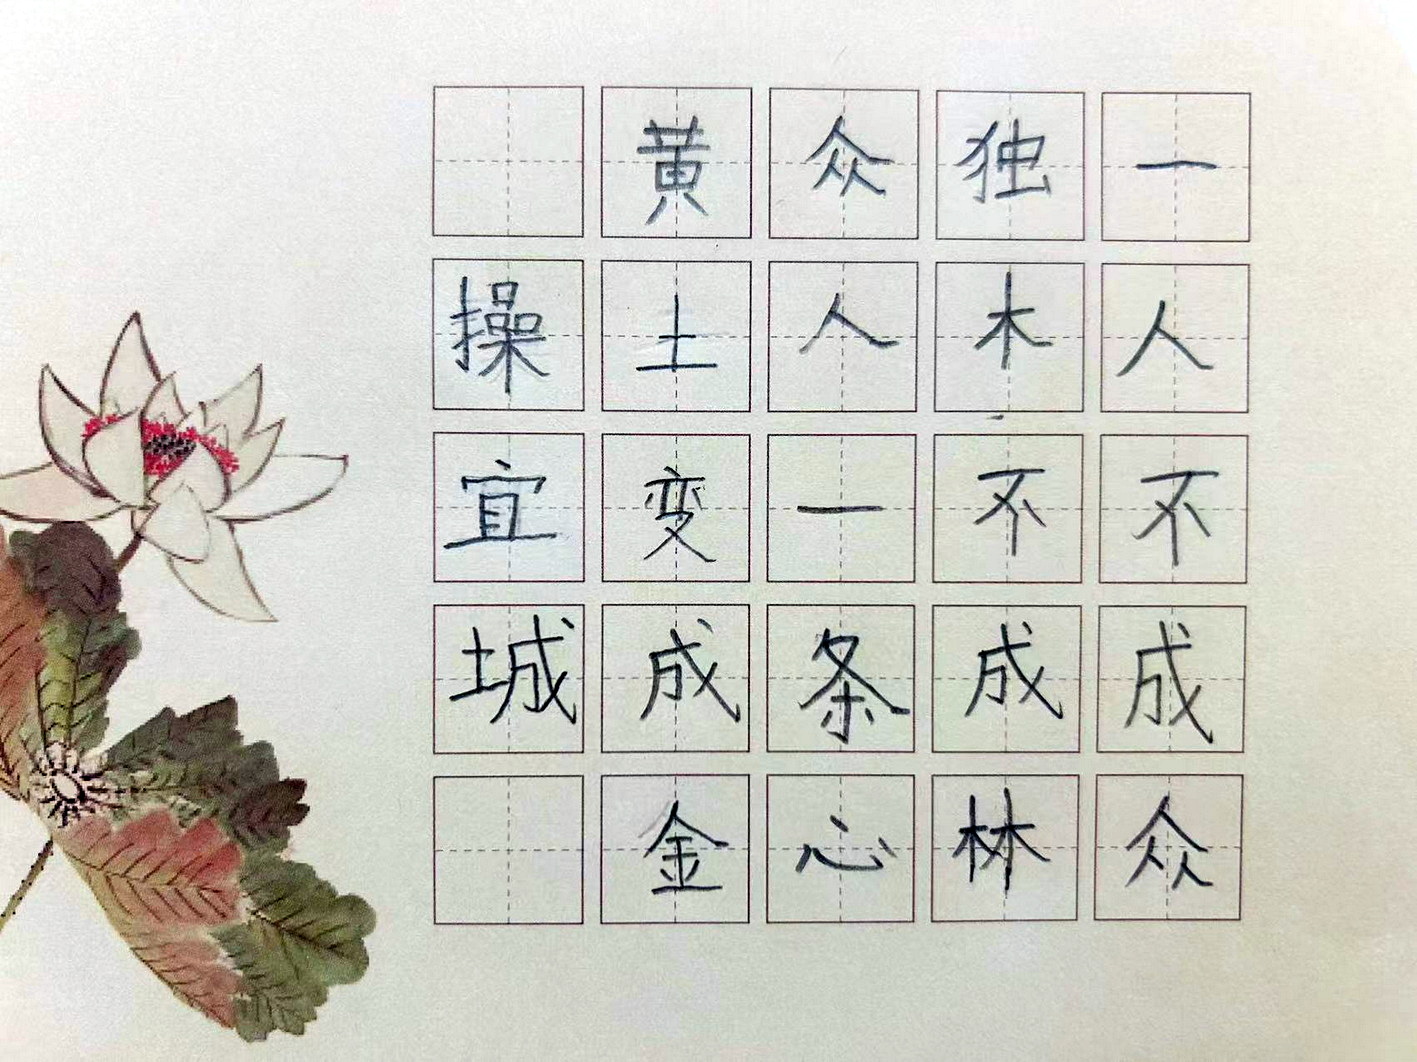 一人不成众
独木不成林
众人一条心
黄土变成金
操宜城